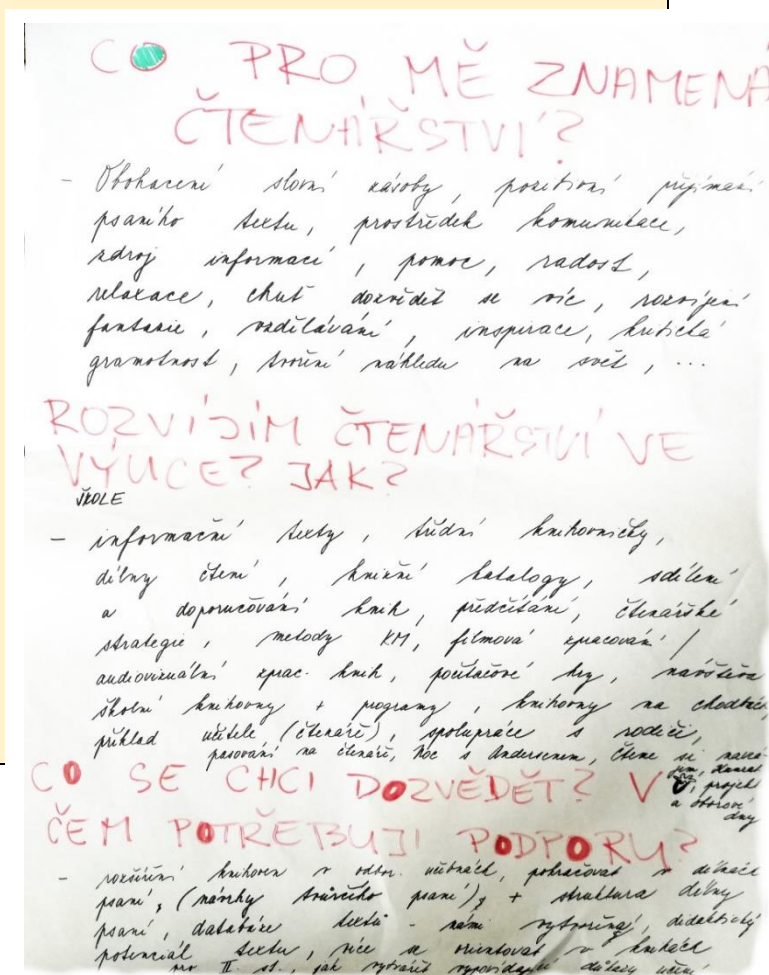 CO PRO MĚ ZNAMENÁ
ČTENÁŘSTVÍ?
- Obohacení slovní zásoby, pozitivní přijímání
psaného textu, prostředek komunikace,
zdroj informací, pomoc, radost,
relaxace, chuť dozvědět se víc, rozvíjení
fantazie, vzdělávání, inspirace, kritická
gramotnost, tvoření náhledu na svět, ...
ROZVÍJÍM ČTENÁŘSTVÍ VE
VÝUCE? JAK?
ŠKOLE
- informační texty, třídní knihovničky,
dílny čtení, knižní katalogy, sdílení
a doporučování knih, předčítání, čtenářské
strategie, metody KM, filmová zpracování /
audiovizuální zprac. knih, počítačové hry, návštěva
školní knihovny + programy, knihovny na chodbách,
příklad učitele (čtenáři), spolupráce s rodiči,
pasování na čtenáře, Noc s Andersenem, čteme si
projekt
a oborové
dny
CO SE CHCI DOZVĚDĚT? V
ČEM POTŘEBUJI PODPORU?
- rozšíření knihoven v odbor. učebnách, pokračovat v dílnách
psaní, (návrhy tvůrčího psaní), + struktura dílny
psaní, databáze textů - námi vytvořená, didaktický
potenciál textu, více se orientovat v knihách
pro II. st., jak vytvářet vypovídající důkazy učení